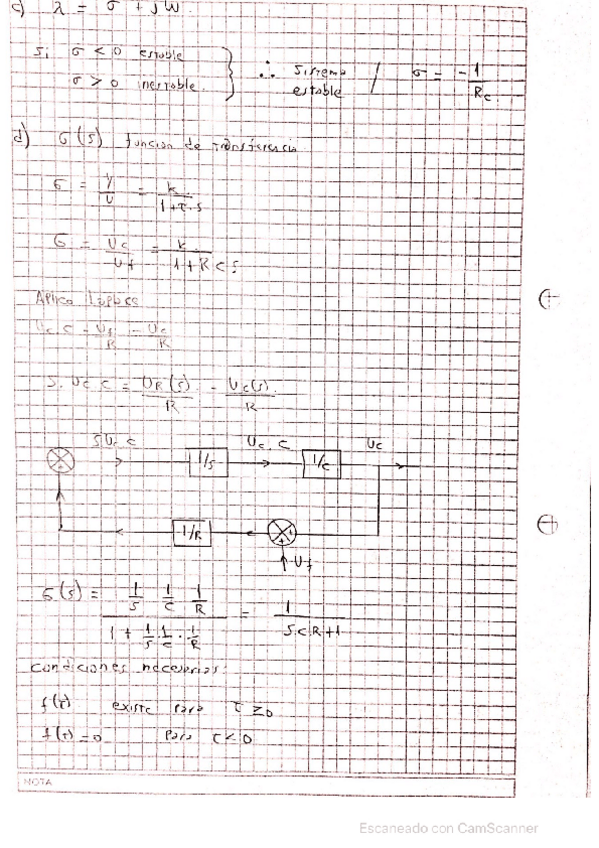 c) λ = σ + jω
Si σ < 0 estable
σ > 0 inestable
∴ Sistema estable / σ = -1/Rc
d) G(s) funcion de transferencia
G = Y/U = k/(1+τ.s)
G = Uc/Uf = k/(1+Rcs)
Aplico Laplace
Uc c = Uf/R - Uc/R
S. Uc c = UR(s)/R - Uc(s)/R
S Uc c
1/s
Uc. c
1/c
Uc
1/R
Uf
G(s) = (1/s 1/c 1/R)/(1 + 1/s 1/c . 1/R) = 1/(ScR+1)
condiciones necesarias:
f(t) existe para t ≥ 0
f(t) = 0 para t < 0
NOTA
Escaneado con CamScanner